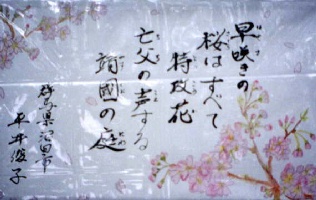 早咲きの
桜はすべて
特攻花
亡父の声する
靖國の庭
静岡県沼田市
平井俊子